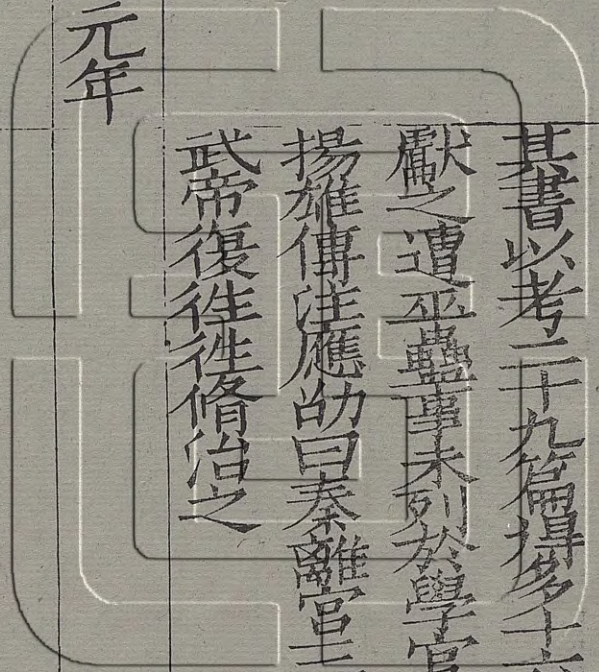 其書以考二十九篇得多十六
獻之遭巫蠱事未列於學官
揚雄傳注應劭曰秦離宮二
武帝復往往脩治之
元年